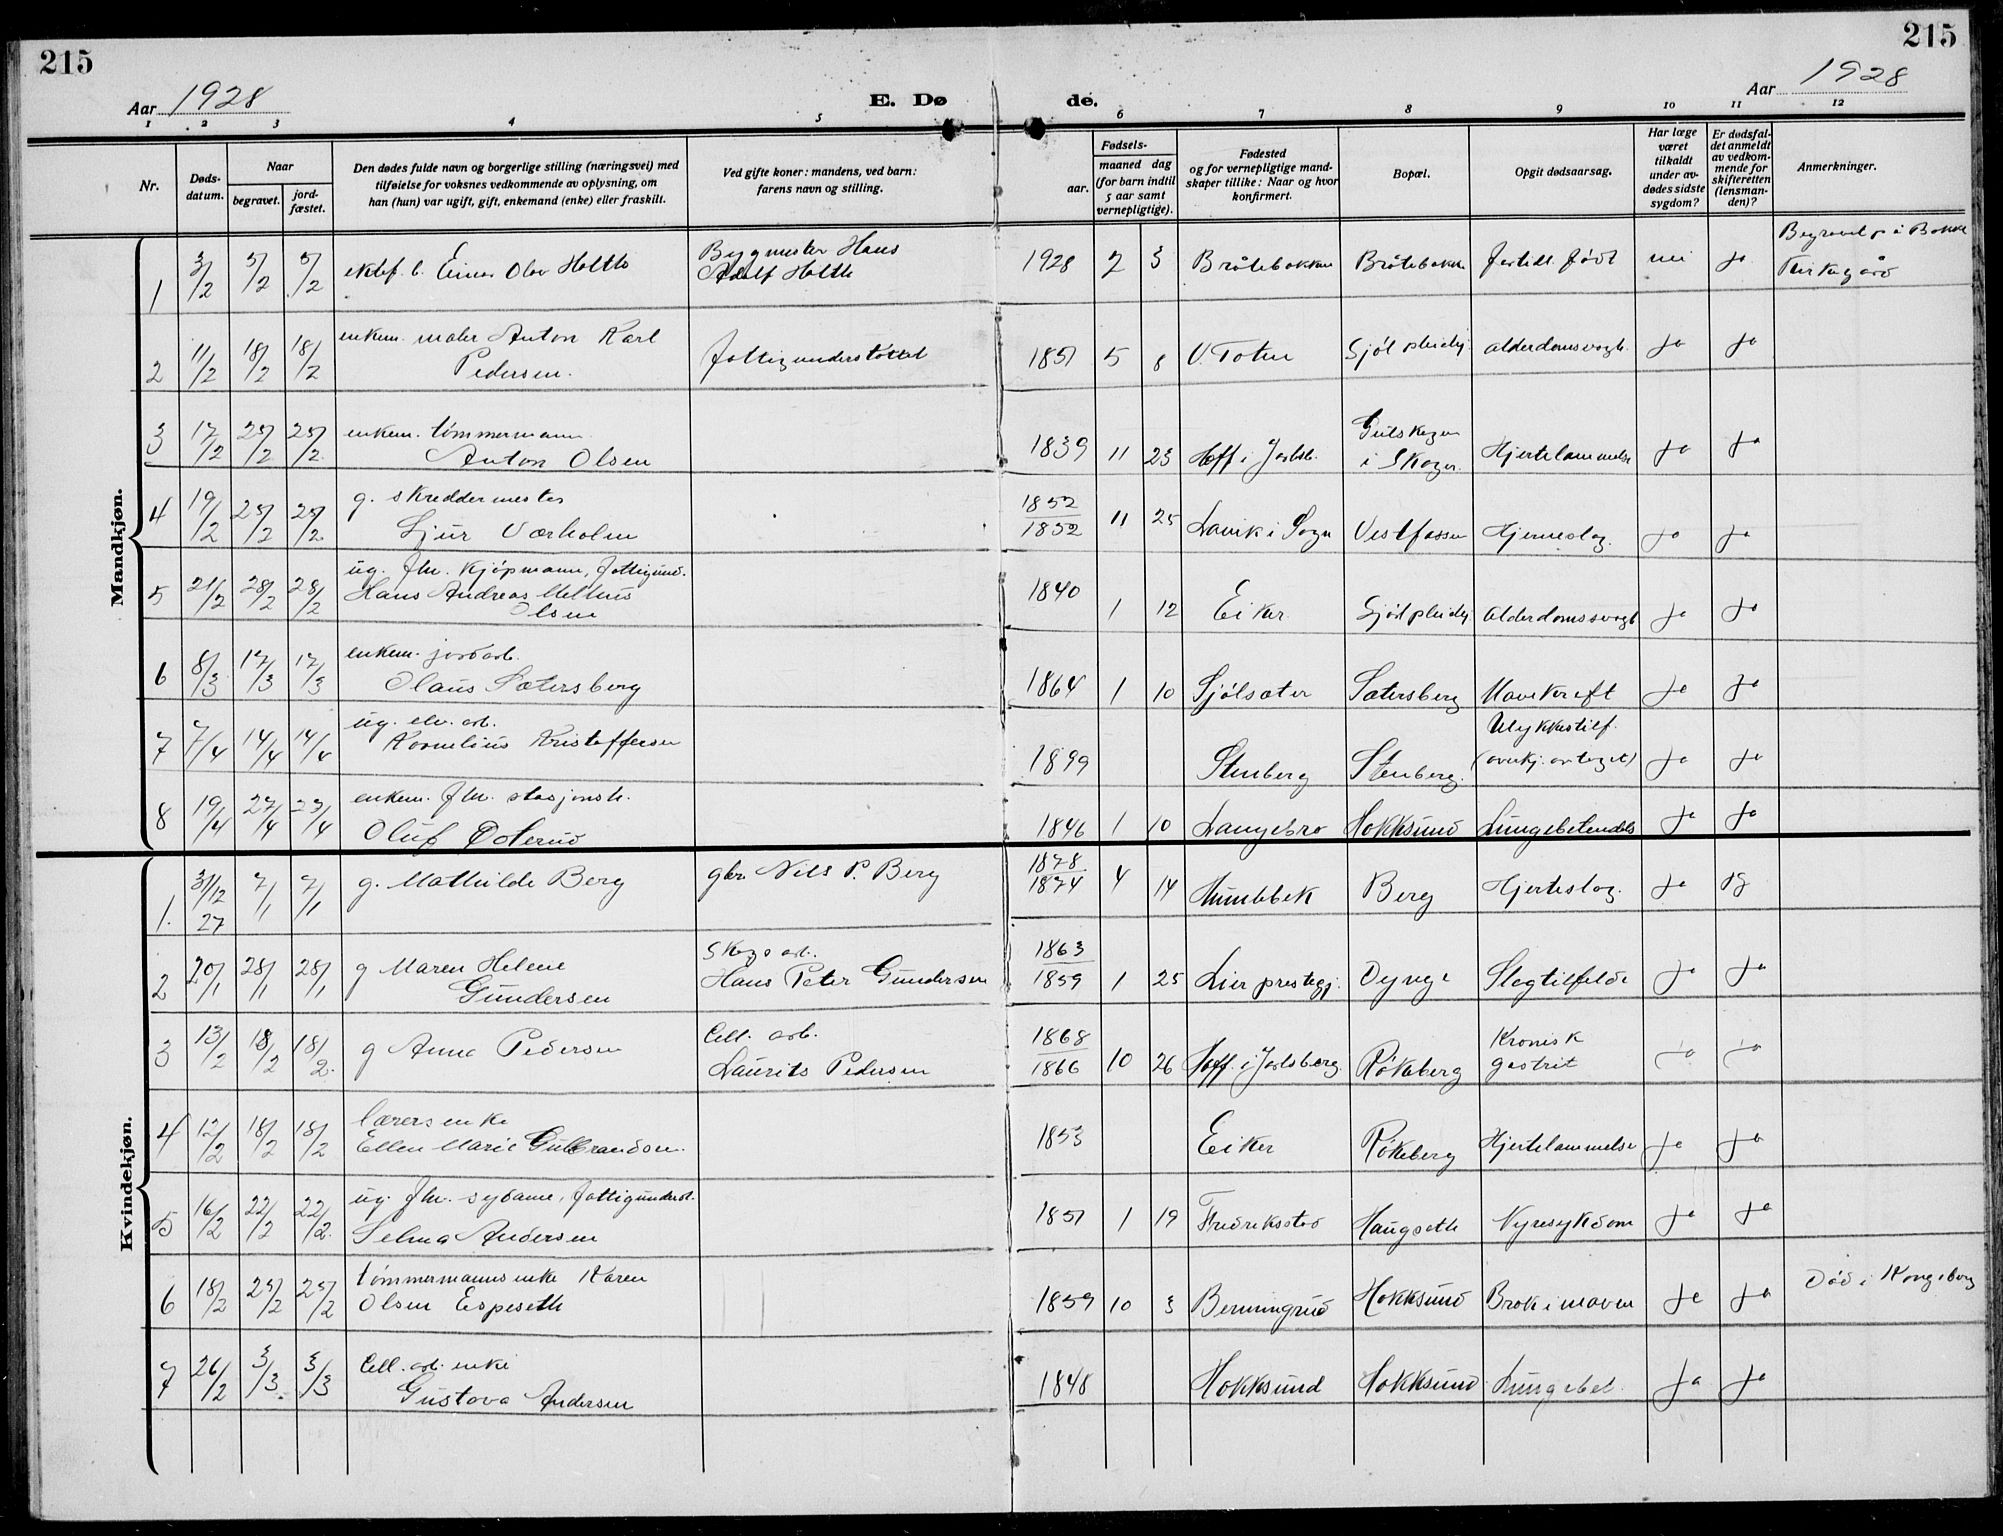 215
215
Aar 1928
E. Dø
de.
Aar 1928
1 2 3 4 5 6 7 8 9 10 11 12
Nr.
Døds-
datum.
Naar
begravet.
jord-
fæstet.
Den dødes fulde navn og borgerlige stilling (næringsvei) med
tilføielse for voksnes vedkommende av oplysning, om
han (hun) var ugift, gift, enkemand (enke) eller fraskilt.
Ved gifte koner: mandens, ved barn:
farens navn og stilling.
Fødsels-
aar.
maaned dag
(for barn indtil
5 aar samt
vernepligtige).
Fødested
og for vernepligtige mand-
skaper tillike: Naar og hvor
konfirmert.
Bopæl.
Opgit dødsaarsag.
Har læge
været
tilkaldt
under av-
dødes sidste
sygdom?
Er dødsfal-
det anmeldt
av vedkom-
mende for
skifteretten
(lensman-
den)?
Anmerkninger.
Mandkjøn.
1 3/2 5/2 5/2 ektef. b. Einar Olav Holth Bygmester Hans
Adolf Holth 1928 2 3 Bråtebakken Bråtebakken fortidl. født nei ja
Begravet på Bakke
Kirkegård
2 11/2 18/2 18/2 enkem. maler Anton Karl
Pedersen. fattigunderstøttet 1851 5 8 V. Toten Sjøl pleiehj. alderdomssvagh. ja ja
3 17/2 25/2 25/2 enkem. tømmermann
Anton Olsen 1839 11 23 Hoff i Jarlsb. Gutskogen
i Skoger. Hjertelammelse ja ja
4 19/2 25/2 25/2 g. skreddermester
Sjur Værholm 1852
1852 11 25 Lavik i Sogn Vestfossen Hjerneslag. ja ja
5 21/2 28/2 28/2 ug. fhv. kjøpmann, fattigund.
Hans Andreas Mellius
Olsen 1840 1 12 Eiker Sjøl pleiehj. alderdomssvagh. ja ja
6 8/3 17/3 17/3 enkem. jordarb.
Olaus Sætersberg 1864 1 10 Sjølsæter Sætersberg Mavekreft ja ja
7 7/4 14/4 14/4 ug. elv. arb.
Kornelius Kristoffersen 1899 Stenberg Stenberg. Ulykkestilf.
(overkj. av toget) ja ja
8 19/4 27/4 27/4 enkem. fhv. stasjonsb.
Oluf Dolerud 1846 1 10 Langebro Hokksund Lungebetendels ja ja
Kvindekjøn.
1. 31/12
27 7/1 7/1 g. Mathilde Berg gbr. Nils P. Berg 1878
1874 4 14 Humlebæk Berg Hjerteslag. ja ja
2 20/1 28/1 28/1 g Maren Helene
Gundersen Skogsarb.
Hans Peter Gundersen 1863
1859 1 25 Lier prestegj. Dynge Slagtilfelde ja ja
3 13/2 18/2 18/2. g Anna Pedersen Cell. arb.
Laurits Pedersen 1868
1866 10 26 Hoff. i Jarlsberg. Røkeberg Kronisk
gastrit ja ja
4 12/2 18/2 18/2 lærersenke
Ellen Marie Gulbrandsen. 1853 Eiker Røkeberg Hjertelammelse ja ja
5 16/2 22/2 22/2. ug. fhv. sydame, fattigunderst.
Selma Andersen 1851 1 19 Fredriksstad Haugseth Nyresykdom ja ja
6 18/2 25/2 25/2 tømmermannsenke Karen
Olsen Espeseth 1859 10 3 Berningrud Hokksund Brok i maven ja ja Død i Kongsberg
7 26/2 3/3 3/3 Cell. arb. enke
Gustava Andersen 1848 Hokksund Hokksund Lungebet. ja ja